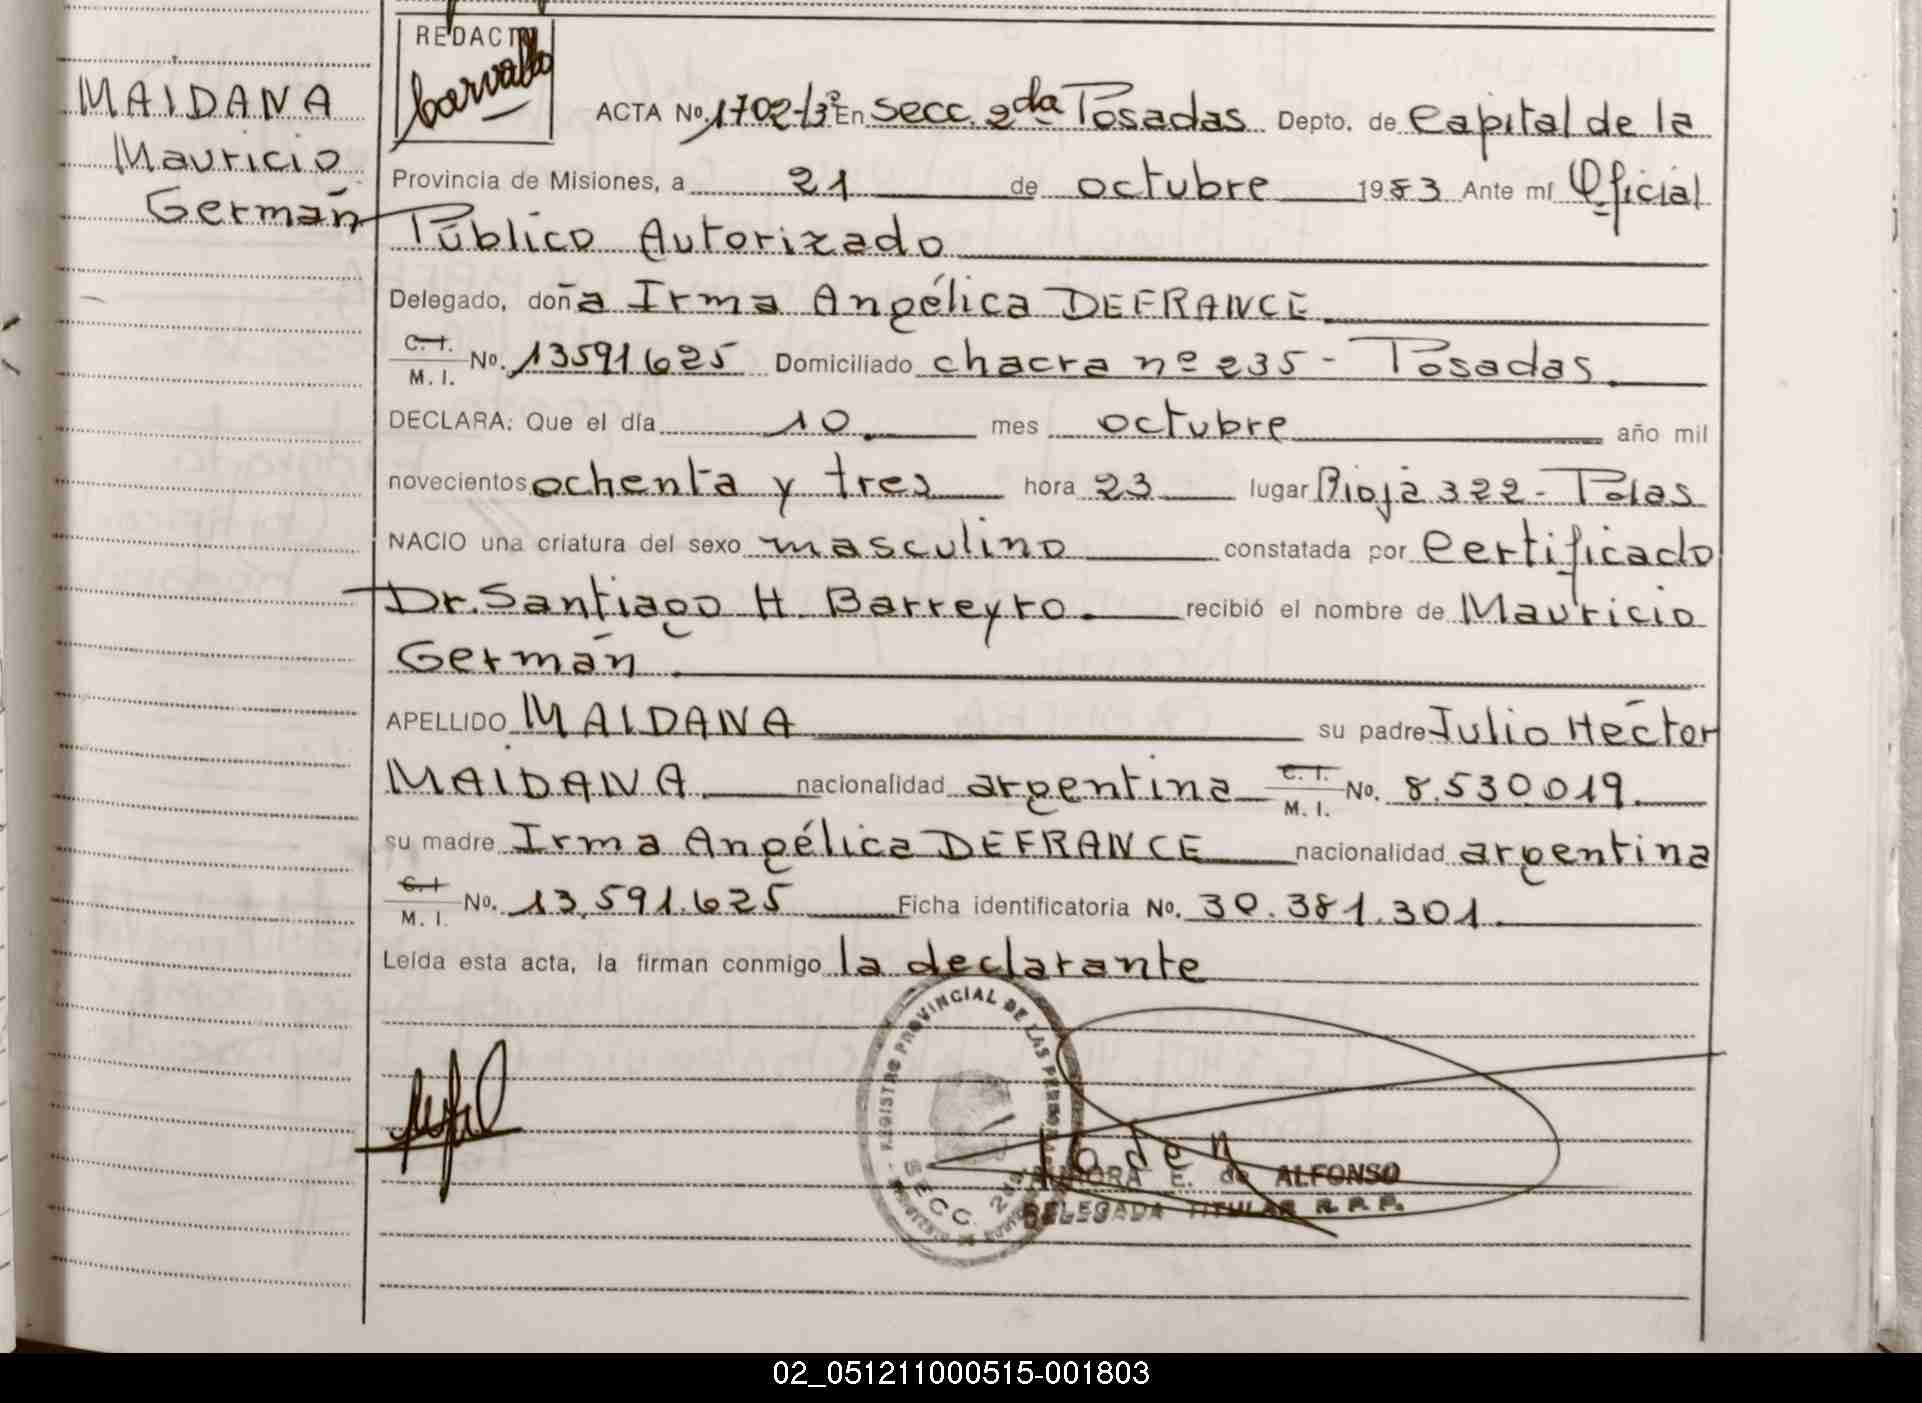 REDACTO
Carvallo
MAIDANA
Mauricio
Germán
ACTA No. 1702-t3º En Secc. 2da Posadas Depto. de Capital de la
Provincia de Misiones, a 21 de octubre 1983 Ante mí Oficial
Público Autorizado
Delegado, doña Irma Angélica DEFRANCE
C. I.
M. I. No. 13591625 Domiciliado chacra nº 235 - Posadas.
DECLARA: Que el día 10 mes octubre año mil
novecientos ochenta y tres hora 23 lugar Rioja 322 - Pdas
NACIO una criatura del sexo masculino constatada por Certificado
Dr. Santiago H. Barreyro. recibió el nombre de Mauricio
Germán
APELLIDO MAIDANA su padre Julio Héctor
MAIDANA nacionalidad argentina C. I. M. I. No. 8.530.019.
su madre Irma Angélica DEFRANCE nacionalidad argentina
C. I. M. I. No. 13.591.625 Ficha identificatoria No. 30.381.301.
Leída esta acta, la firman conmigo la declarante
REGISTRO PROVINCIAL DE LAS PERSONAS
SECC. 2da
E. de ALFONSO
DELEGADA TITULAR R. P. P.
02_051211000515-001803